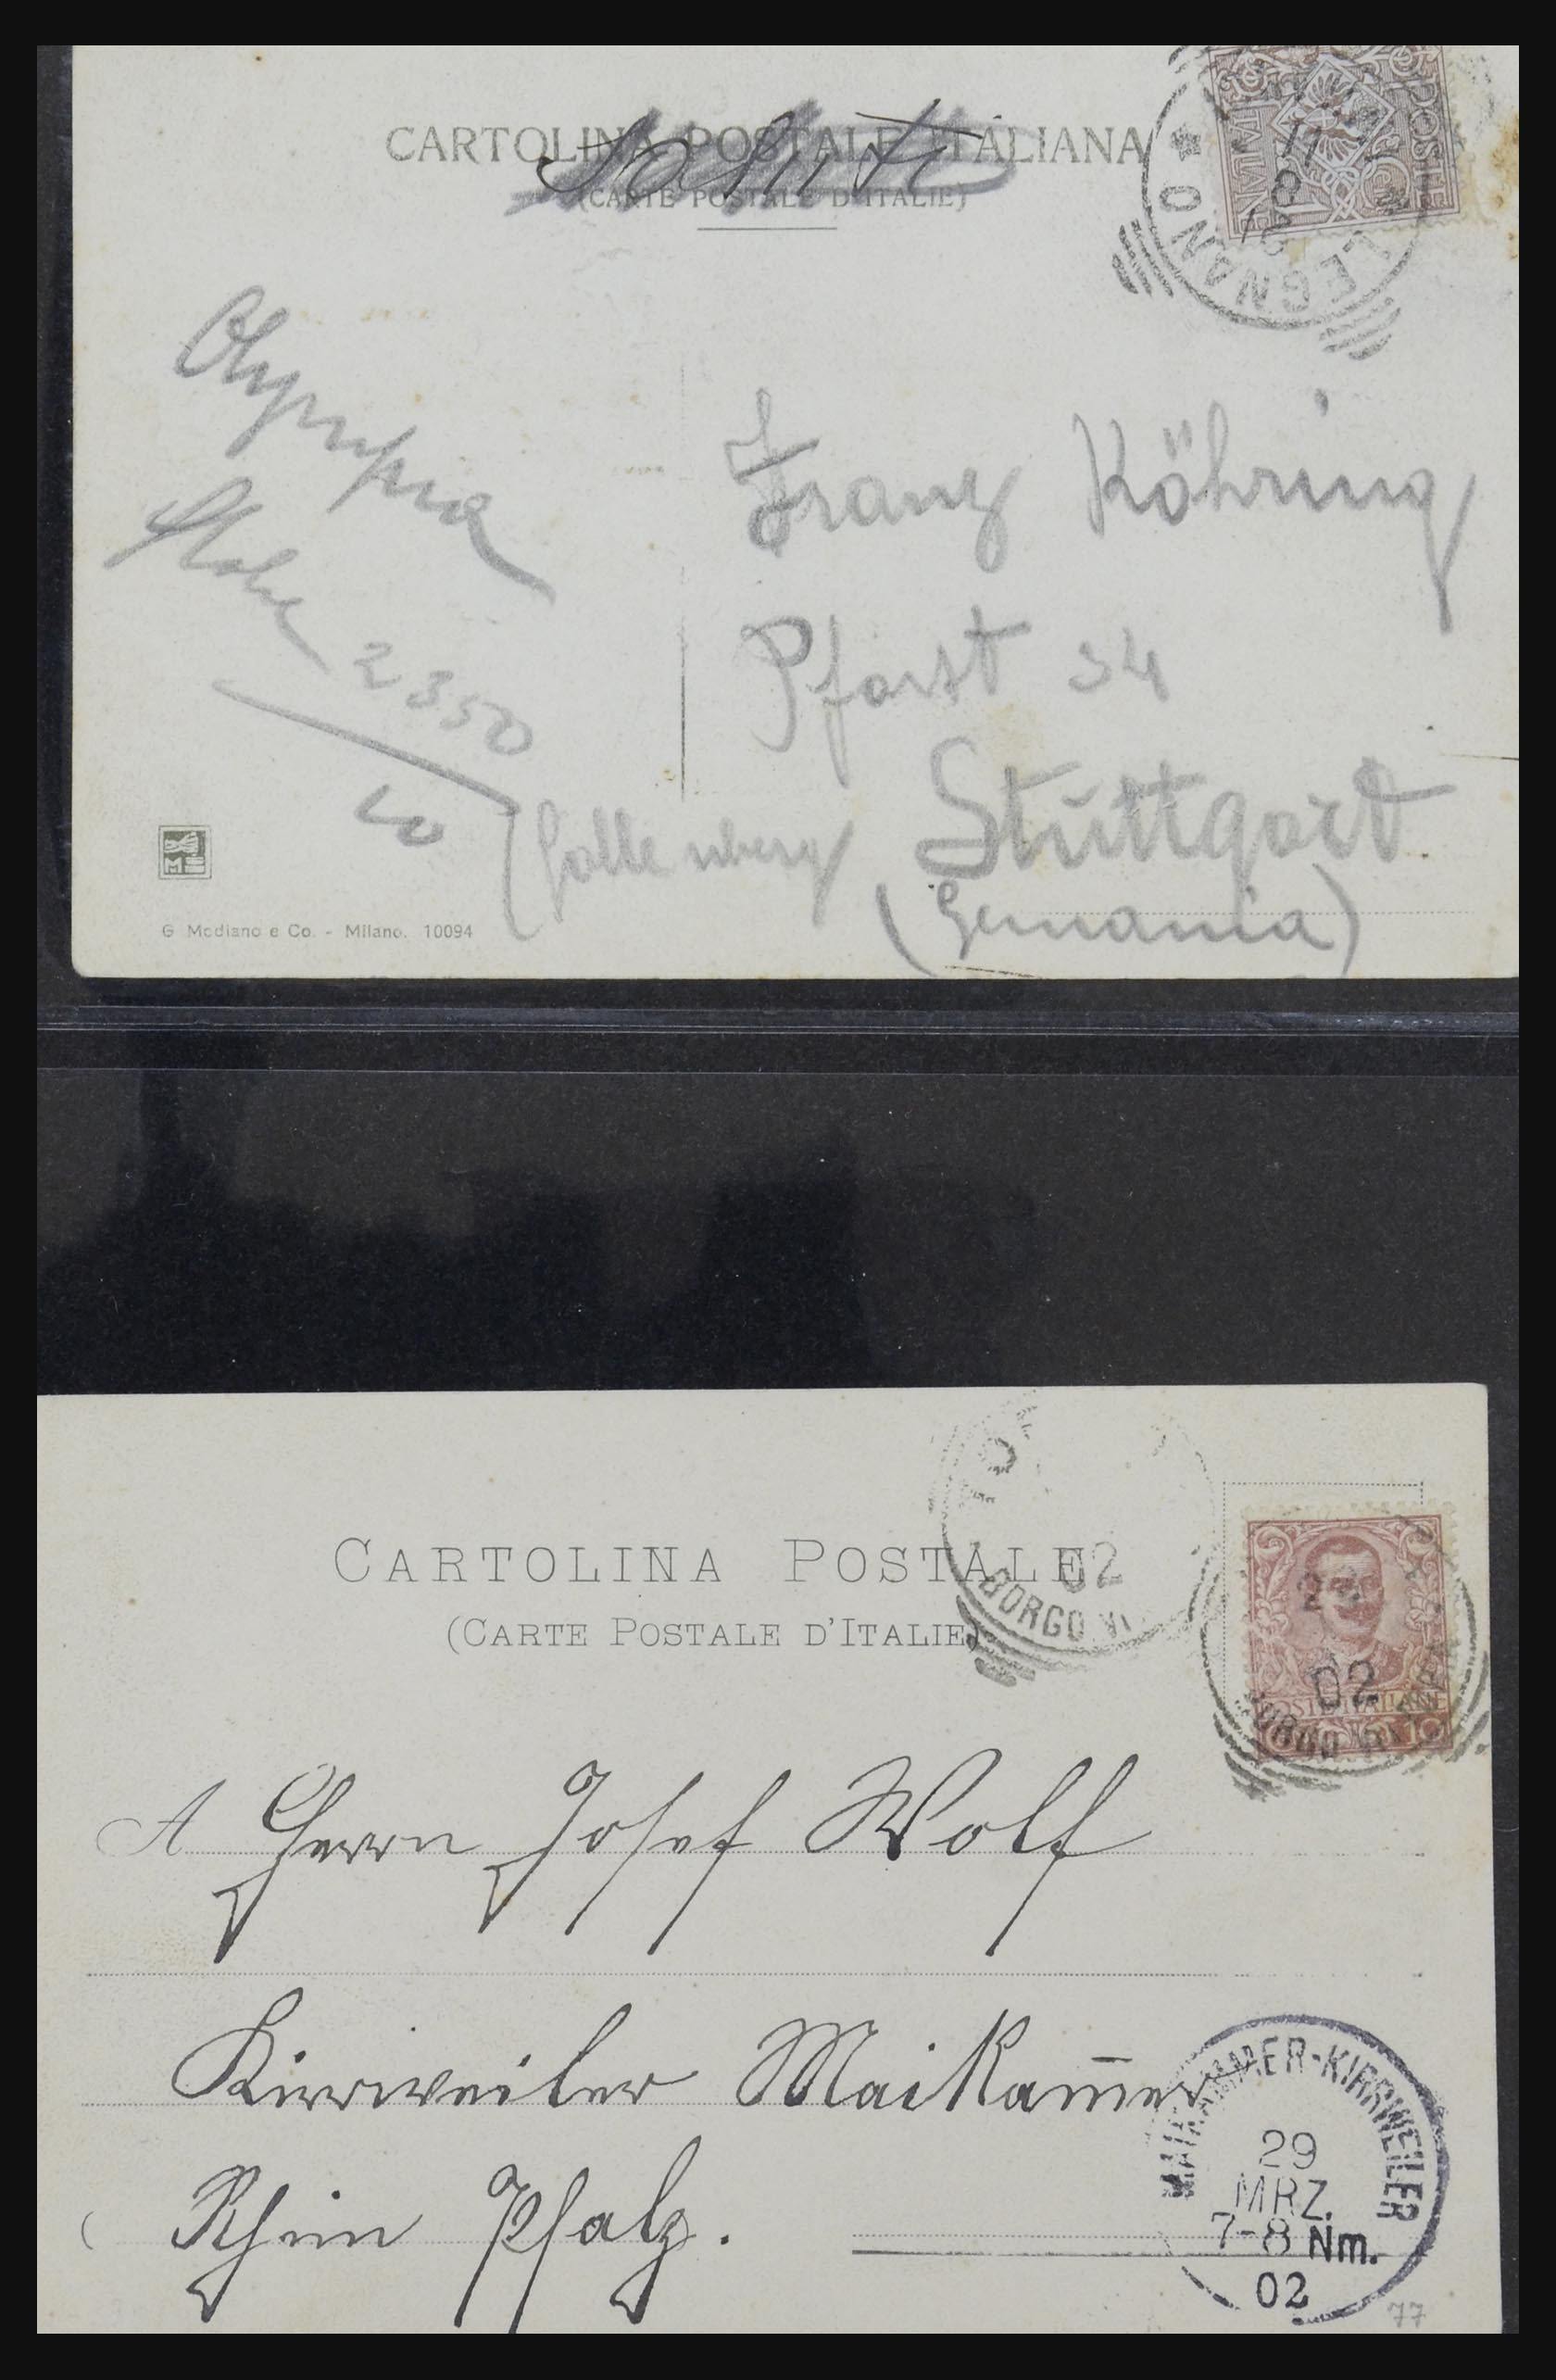 CARTOLINA POSTALE ITALIANA
(CARTE POSTALE D'ITALIE)
Saluti
POSTE
LEGNANO
Olympia
2350
Franz Köhring
Pforst 34
Stuttgart
(Germania)
G. Modiano e Co. - Milano. 10094
CARTOLINA POSTALE
(CARTE POSTALE D'ITALIE)
02
BORGO
02
POSTE ITALIANE
10
A Herrn Josef Wolf
Kirrweiler Maikam̄er
Rhein Pfalz.
MAIKAMMER-KIRRWEILER
29
MRZ.
7-8 Nm.
02
77